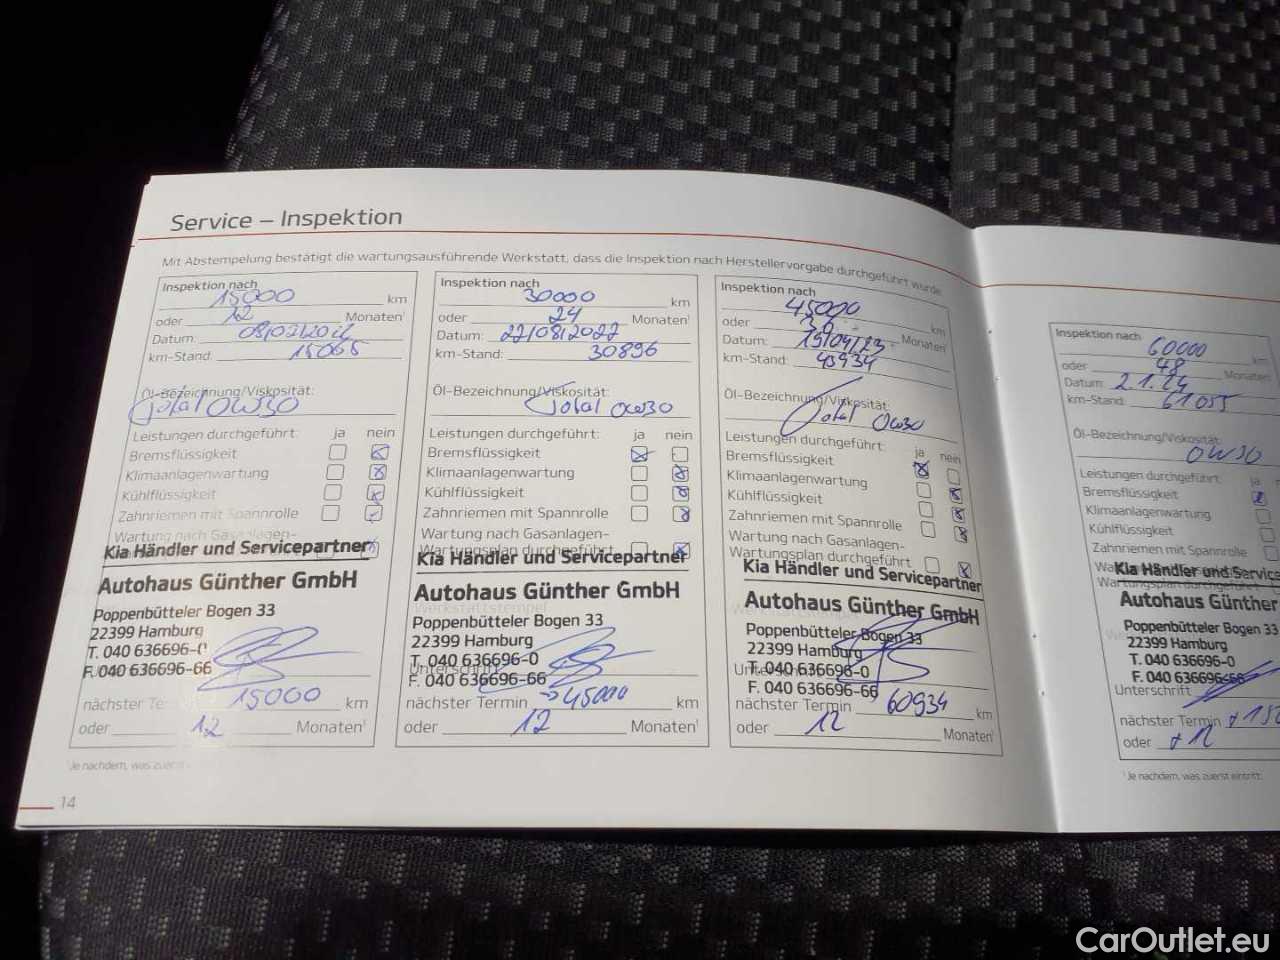 Service – Inspektion
Mit Abstempelung bestätigt die wartungsausführende Werkstatt, dass die Inspektion nach Herstellervorgabe durchgeführt wurde.
Inspektion nach
15000 km
oder 12 Monaten¹
Datum:
km-Stand: 15065
Öl-Bezeichnung/Viskosität:
Total 0W30
Leistungen durchgeführt: ja nein
Bremsflüssigkeit
Klimaanlagenwartung
Kühlflüssigkeit
Zahnriemen mit Spannrolle
Wartung nach Gasanlagen-
Kia Händler und Servicepartner
Autohaus Günther GmbH
Poppenbütteler Bogen 33
22399 Hamburg
T. 040 636696-0
F. 040 636696-66
nächster Te 15000 km
oder 12 Monaten¹
¹Je nachdem, was zuerst
14
Inspektion nach
30000 km
oder 24 Monaten¹
Datum: 22/08/2022
km-Stand: 30896
Öl-Bezeichnung/Viskosität:
Total 0W30
Leistungen durchgeführt: ja nein
Bremsflüssigkeit
Klimaanlagenwartung
Kühlflüssigkeit
Zahnriemen mit Spannrolle
Wartung nach Gasanlagen-
Wartungsplan durchgeführt
Kia Händler und Servicepartner
Autohaus Günther GmbH
Werkstattstempel
Poppenbütteler Bogen 33
22399 Hamburg
T. 040 636696-0
Unterschrift
F. 040 636696-66
nächster Termin 45000 km
oder 12 Monaten¹
Inspektion nach
45000 km
oder 36 Monaten¹
Datum: 19/04/23
km-Stand: 45934
Öl-Bezeichnung/Viskosität:
Total 0W30
Leistungen durchgeführt: ja nein
Bremsflüssigkeit
Klimaanlagenwartung
Kühlflüssigkeit
Zahnriemen mit Spannrolle
Wartung nach Gasanlagen-
Wartungsplan durchgeführt
Kia Händler und Servicepartner
Autohaus Günther GmbH
Poppenbütteler Bogen 33
22399 Hamburg
T. 040 636696-0
F. 040 636696-66
nächster Termin 60934 km
oder 12 Monaten¹
Inspektion nach
60000 km
oder 48 Monaten¹
Datum: 2.1.24
km-Stand: 61055
Öl-Bezeichnung/Viskosität:
0W30
Leistungen durchgeführt: ja
Bremsflüssigkeit
Klimaanlagenwartung
Kühlflüssigkeit
Zahnriemen mit Spannrolle
Kia Händler und Service
Autohaus Günther
Poppenbütteler Bogen 33
22399 Hamburg
T. 040 636696-0
F. 040 636696-66
Unterschrift
nächster Termin +150
oder +12
¹Je nachdem, was zuerst eintritt.
CarOutlet.eu